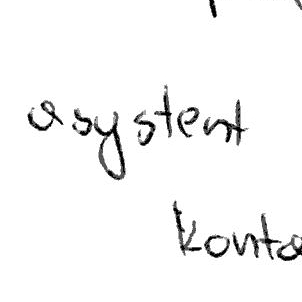 asystent
konta